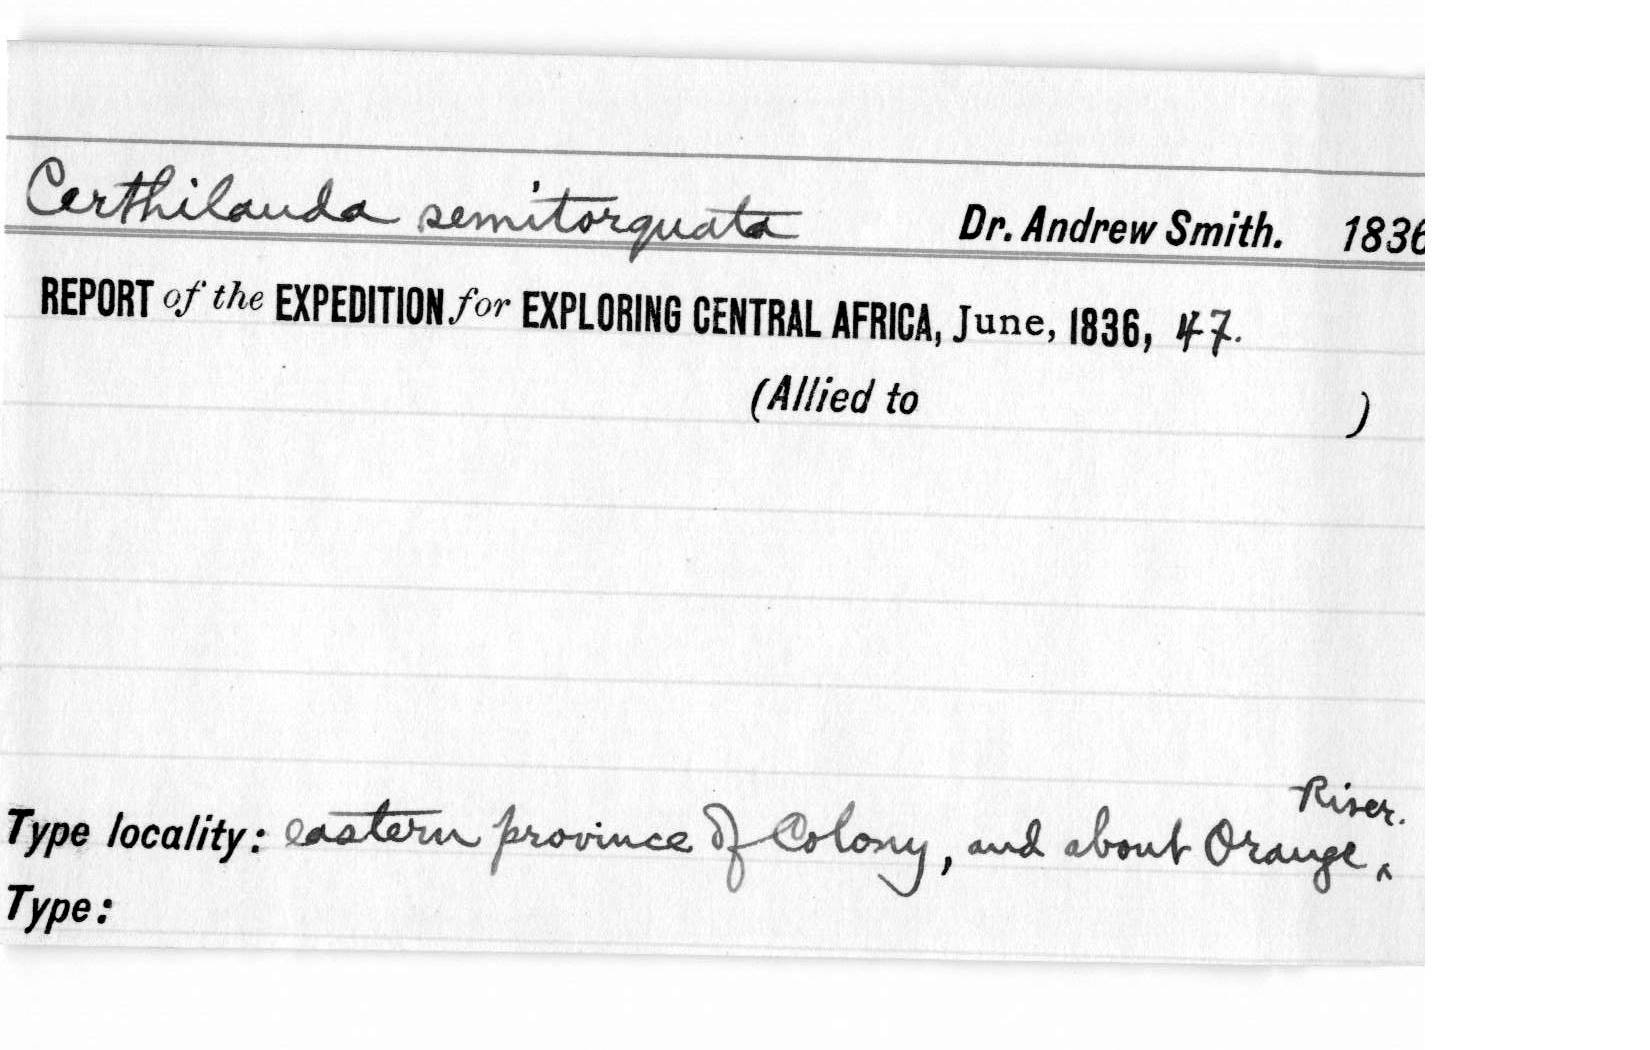 Certhilauda semitorquata Dr. Andrew Smith. 1836
REPORT of the EXPEDITION for EXPLORING CENTRAL AFRICA, June, 1836, 47.
(Allied to )
Type locality: eastern province of Colony, and about Orange ‸ River.
Type: